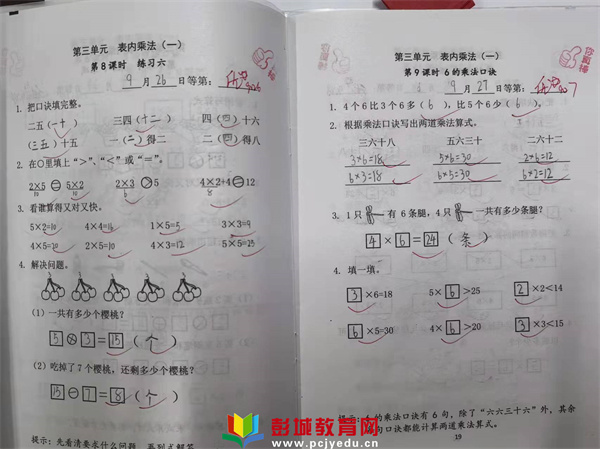 第三单元 表内乘法（一）
第8课时 练习六
9月26日等第：
1. 把口诀填完整。
二五（一十） 三四（十二） 四（四）十六
（三五）十五 一（二）得二 二（四）得八
2. 在○里填上“＞”、“＜”或“＝”。
2×5＝5×2 2×3＞5 4×2+4＝12
10 10 6
3. 看谁算得又对又快。
5×2=10 4×4=16 1×5=5 3×3=9
4×5=20 2×5=10 4×3=12 5×5=25
4. 解决问题。
（1）一共有多少个樱桃？
5×3=15（个）
（2）吃掉了7个樱桃，还剩多少个樱桃？
15－7=8（个）
提示：先看清要求什么问题，再列式解答
第三单元 表内乘法（一）
第9课时 6的乘法口诀
9月27日等第：
1. 4个6比3个6多（6），比5个6少（6）。
2. 根据乘法口诀写出两道乘法算式。
三六十八 五六三十 二六十二
3×6=18 5×6=30 2×6=12
6×3=18 6×5=30 6×2=12
3. 1只有6条腿，4只一共有多少条腿？
4×6=24（条）
4. 填一填。
3×6=18 5×6＞25 2×2＜14
6×5=30 4×6＞20 3×3＜15
的乘法口诀有6句，除了“六六三十六”外，其余
句口诀都能计算两道乘法算式。
19
彭城教育网
www.pcjyedu.cn